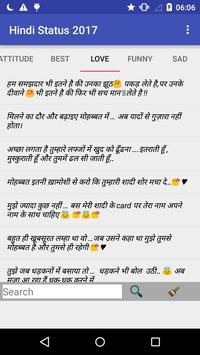 06:06
Hindi Status 2017
ATTITUDE BEST LOVE FUNNY SAD
हम समझदार भी इतने है की उनका झूठ🤗 पकड़ लेते है,पर उनके
दीवाने 💓 भी इतने है की फिर भी सच मान लेते है !!
मिलने का दौर और बढ़ाइए मोहब्बत में .. अब यादों से गुज़ारा नहीं
होता।
अच्छा लगता है तुम्हारे लफ्जों में खुद को ढूँढना .... इतराती हूँ ,
मुस्कुराती हूँ और तुममें ढल सी जाती हूँ..
मोहब्बत इतनी ख़ामोशी से करो कि तुम्हारी शादी शोर मचा दे..
मुझे ज्यादा कुछ नही ... बस मेरी शादी के card पर तेरा नाम अपने
नाम के साथ चाहिए
बहुत ही खूबसूरत लम्हा था वो ...जब उसने कहा था मुझे तुमसे
मोहब्बत है और तुमसे ही रहेगी
तुझे जब धड़कनों में बसाया तो .. धड़कने भी बोल उठी..
Search